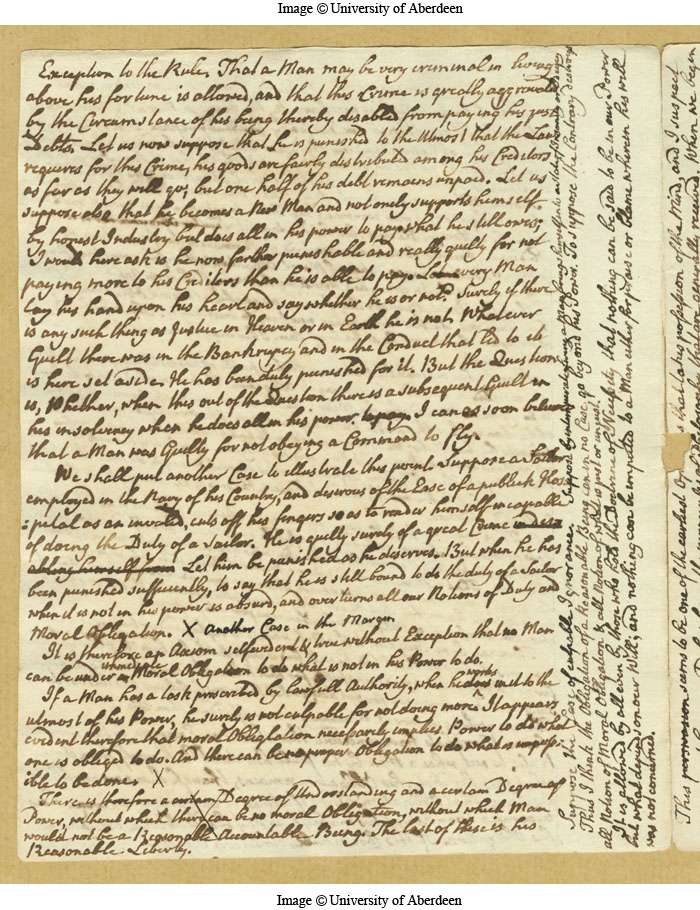 Image © University of Aberdeen
Exception to the Rule. That a Man may be very criminal in living
above his fortune is allowed, and that this Crime is greatly aggravated
by the Circumstance of his being thereby disabled from paying his just
Debts. Let us now suppose that he is punished to the utmost that the Law
requires for this Crime, his goods are fairly distributed among his Creditors
as far as they will go, but one half of his debt remains unpaid. Let us
suppose also that he becomes a New Man and not onely supports himself
by honest Industry but does all in his power to pay what he still owes;
I would here ask is he now farther punishable and really guilty for not
paying more to his Creditors than he is able to pay. Let every Man
lay his hand upon his heart and say whether he is or not? Surely if there
is any such thing as Justice in Heaven or in Earth he is not. Whatever
Guilt there was in the Bankrupcy and in the Conduct that led to it
is here set aside. He has been duly punished for it. But the Question
is, Whether, when this out of the Question there is a subsequent Guilt in
his insolvency when he does all in his power to pay. I can as soon believe
that a Man was Guilty for not obeying a Command to fly.
We shall put another Case to illustrate this point. Suppose a Sailor
employed in the Navy of his Country, and desirous of the Ease of a publick Hos
:pital as an invalid, cuts off his fingers so as to render himself incapable
of doing the Duty of a Sailor. He is guilty surely of a great Crime
Let him be punished as he deserves. But when he has
been punished sufficiently, to say that he is still bound to do the duty of a Sailor
when it is not in his power is absurd, and overturns all our Notions of Duty and
Moral Obligation. X Another Case in the Margin
It is therefore an Axiom selfevident & true without Exception that no Man
can be under an immediate Moral Obligation to do what is not in his Power to do.
If a Man has a task prescribed by lawfull Authority, when he works in it to the
utmost of his Power, he surely is not culpable for not doing more. It appears
evident therefore that moral Obligation necessarily implies Power to do what
one is obliged to do. And there can be no proper Obligation to do what is imposs
ible to be done. X
There is therefore a certain Degree of Understanding and a certain Degree of
Power, without which there can be no moral Obligation, without which Man
would not be a Reasonable Accountable Being. The last of these is his
Reasonable Liberty.
Suppose the Case of culpable Ignorance. Suppose
Thus I think the Obligation of a Reasonable Being can in no Case go beyond his Power. To suppose the Contrary destroys
all Notion of Moral Obligation & all Notion of what is just or unjust.
It is allowed by all even by those who hold the Doctrine of Necessity that nothing can be said to be in our Power
but what depends on our Will; and nothing can be imputed to a Man either for praise or blame wherein his will
was not concerned.
This seems to be one of the earliest
that takes profession of the Mind, and I suspect
Image © University of Aberdeen